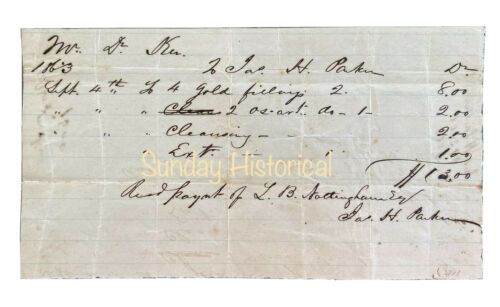 Mrs. Dr. Ker.
1863 To Jas. H. Parker Dr
Sept 4th To 4 Gold fillings 2. 8.00
" " " Clean 2 os-arti do - 1 - 2.00
" " " Cleansing - - 2.00
" " " Extn - " 1.00
$13.00
Recd paymt of L. B. Nottingham Esq
Jas. H. Parker
Sunday Historical